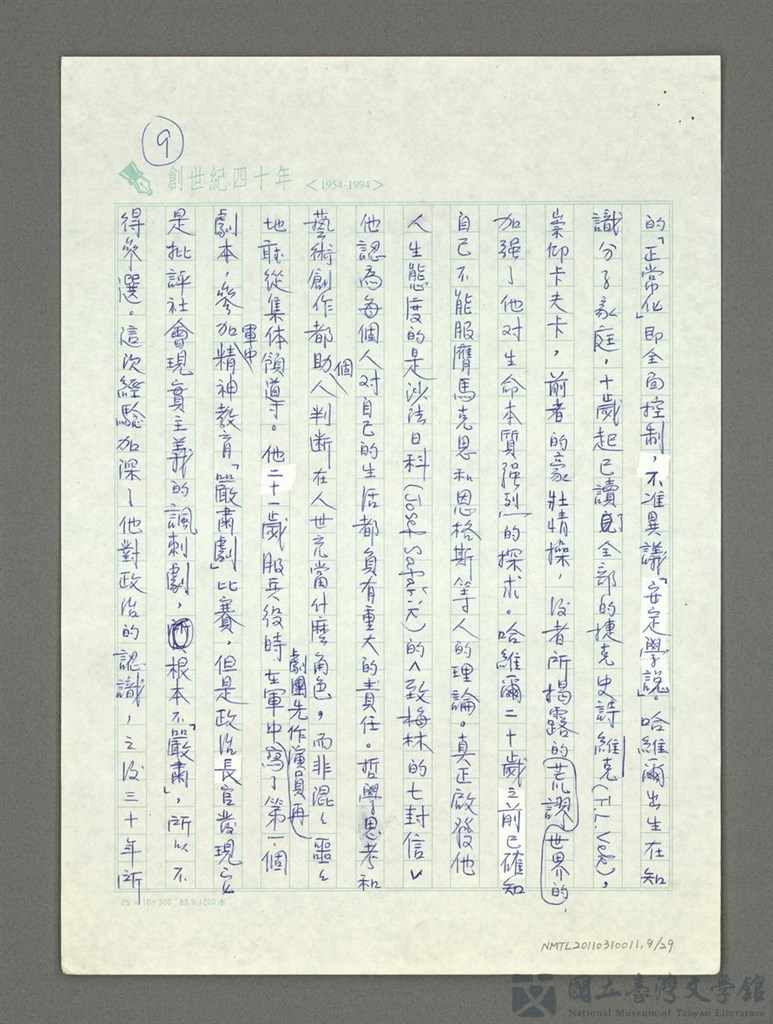 9
創世紀四十年 <1954-1994>
的「正常化」即全面控制,不准異議「安定學說」。哈維爾出生在知
識分子家庭,十歲起已讀完全部的捷克史詩維克(F.L. Vek),
崇仰卡夫卡,前者的豪壯情操,後者所揭露的荒謬世界的,
加强了他对生命本質强烈的探求。哈維爾二十歲之前已確知
自己不能服膺馬克思和恩格斯等人的理論。真正啟發他
人生態度的是沙法日科(Josef Safarik)的<致梅林的七封信>
他認為每個人对自己的生活都負有重大的責任。哲學思考和
藝術創作都助個人判断在人世充當什麼角色,而非混混噩噩
地聽從集体領導。他二十一歲服兵役時在軍中劇團先作演員再寫了第一個
劇本,參加軍中精神教育「嚴肅劇」比賽,但是政治長官發現它
是批評社會現實主義的諷刺劇,根本不「嚴肅」,所以不
得參選。這次經驗加深了他對政治的認識,之後三十年所
25×10=300 83.9.1200本
NMTL20110310011,9/29
國立臺灣文學館
National Museum of Taiwan Literature